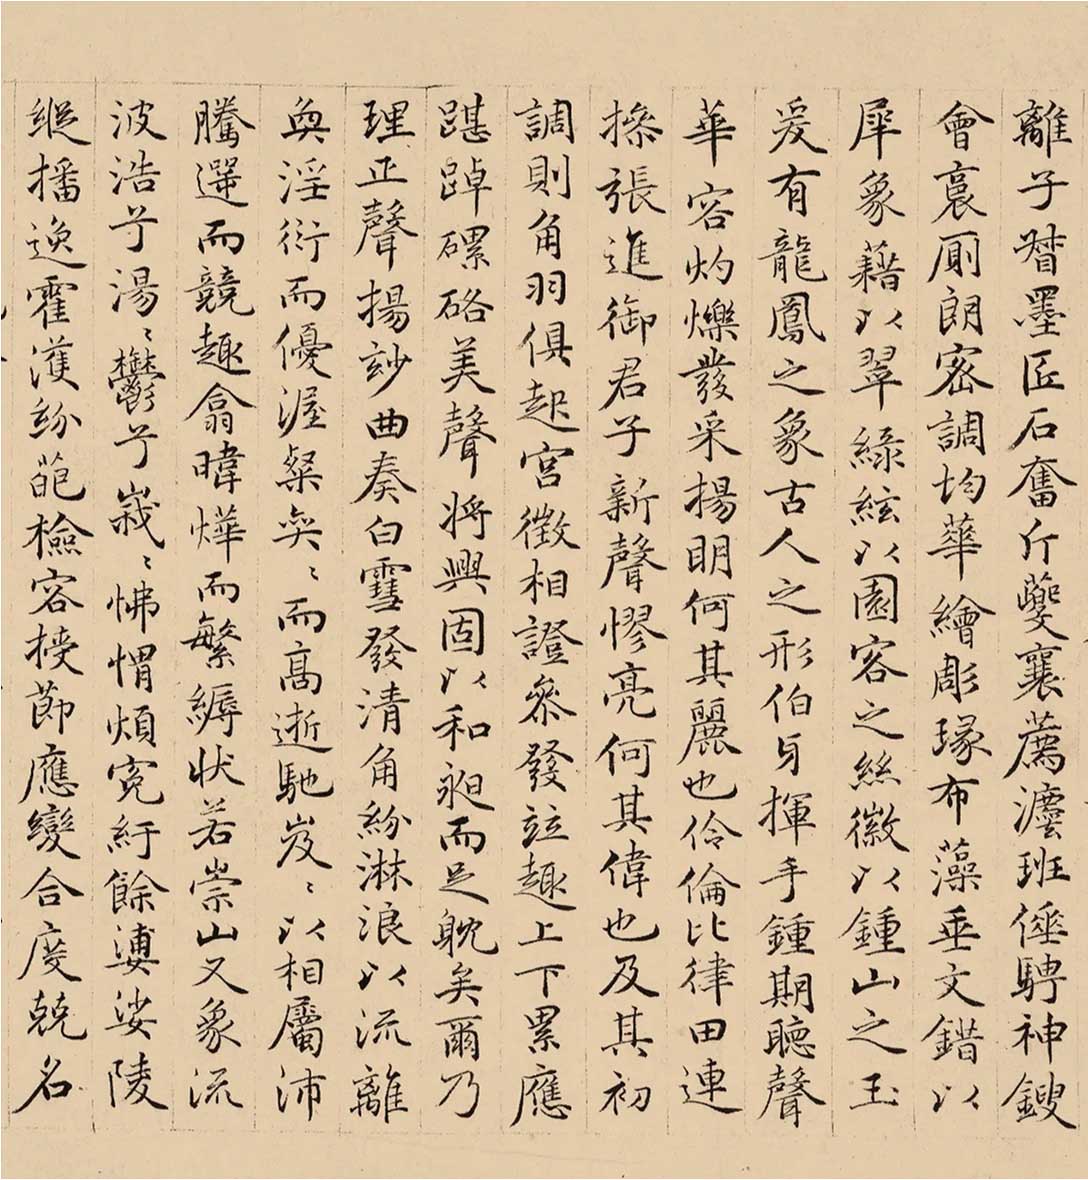 離子督墨匠石奮斤夔襄薦灋班倕騁神鎪
會裛廁朗密調均華繪彫瑑布藻垂文錯以
犀象藉以翠綠絃以園客之絲徽以鍾山之玉
爰有龍鳳之象古人之形伯牙揮手鍾期聽聲
華容灼爍發采揚眀何其麗也伶倫比律田連
操張進御君子新聲憀亮何其偉也及其初
調則角羽俱起宮徵相證叅發竝趣上下累應
踸踔磥硌美聲將興固以和昶而足躭矣爾乃
理正聲揚玅曲奏白雪發清角紛淋浪以流離
奐淫衍而優渥粲奕〻而高逝馳岌〻以相屬沛
騰遻而競趣翕暐燁而繁縟狀若崇山又象流
波浩兮湯〻鬱兮峩〻怫愲煩冤紆餘婆娑陵
縱播逸霍濩紛葩檢容授節應變合度兢名